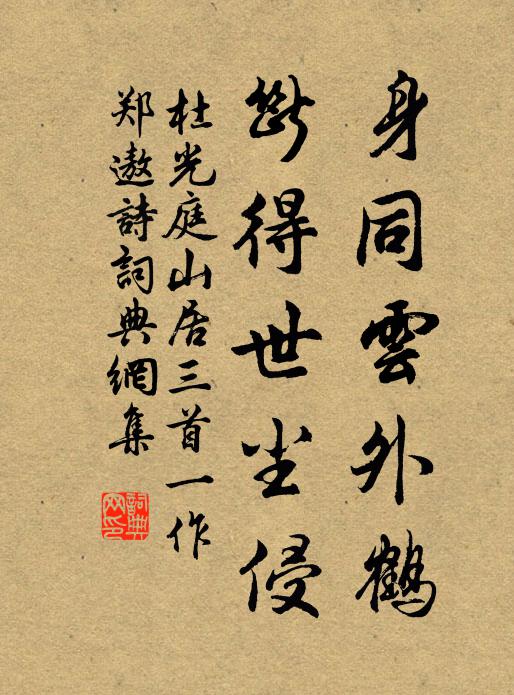 身同雲外鶴
斷得世尘侵
杜光庭山居三首一作
郑遨詩詞典網集
詞典網印